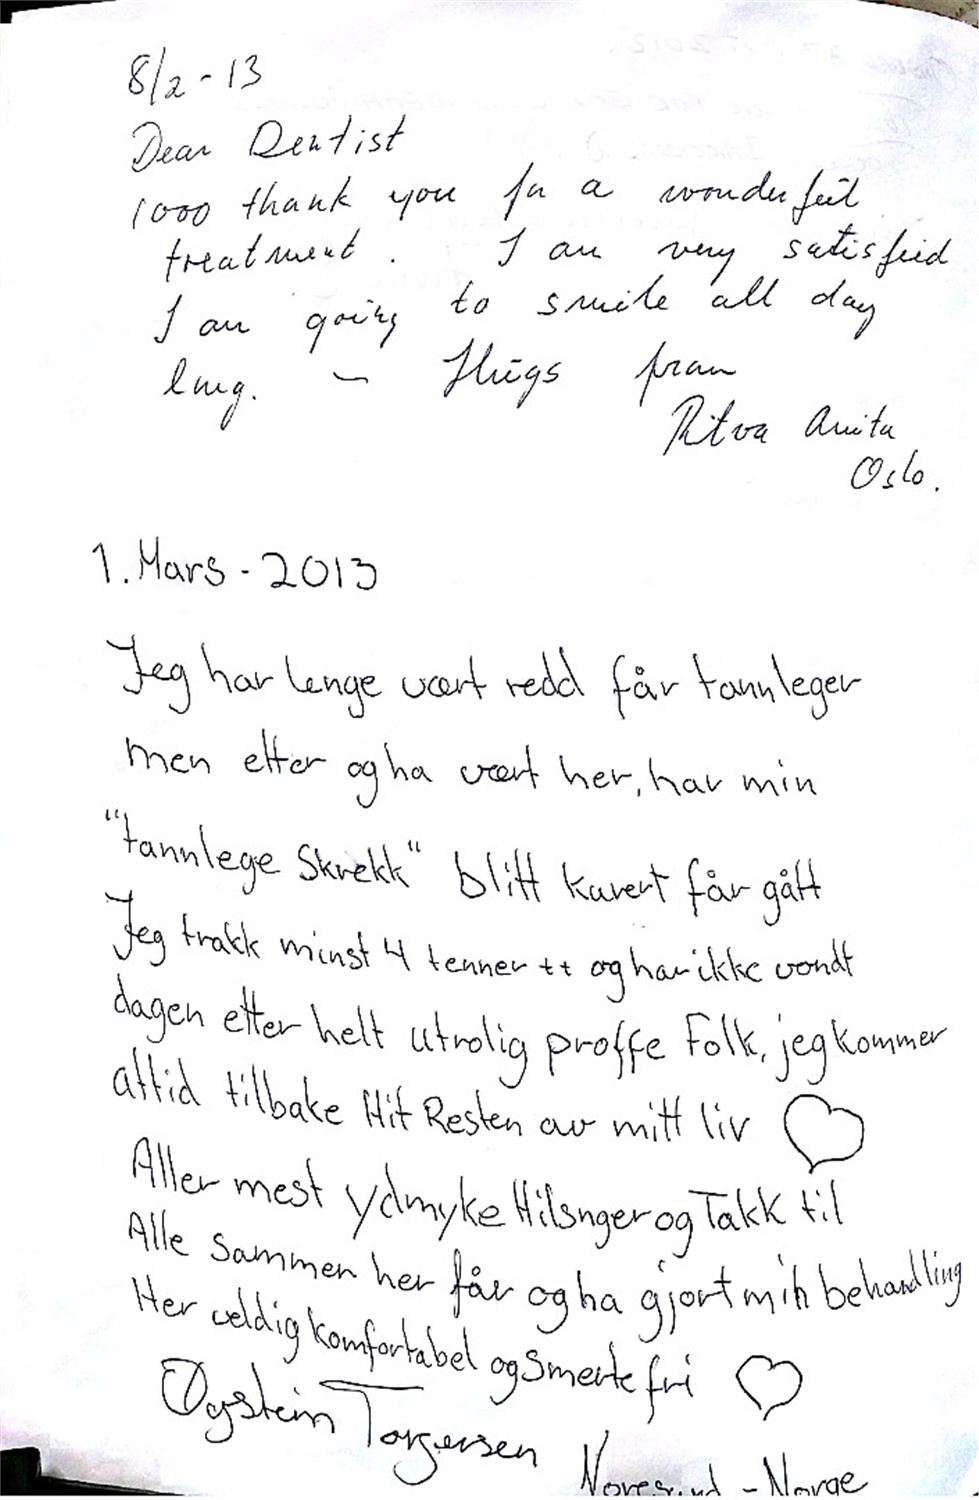 8/2-13
Dear Dentist
1000 thank you for a wonderfúl
treatment. I am very satisfied
I am going to smile all day
long. – Hugs from
Ritva Anita
Oslo.
1. Mars - 2013
Jeg har lenge vært redd får tannleger
men etter og ha vært her, har min
"tannlege Skrekk" blitt kurert får gått
Jeg trakk minst 4 tenner ++ og har ikke vondt
dagen etter helt utrolig proffe Folk, jeg kommer
alltid tilbake Hit Resten av mitt liv ♡
Aller mest ydmyke Hilsnger og Takk til
Alle sammen her får og ha gjort min behandling
Her veldig komfortabel og Smerte fri ♡
Øystein Torgersen
Noresund - Norge